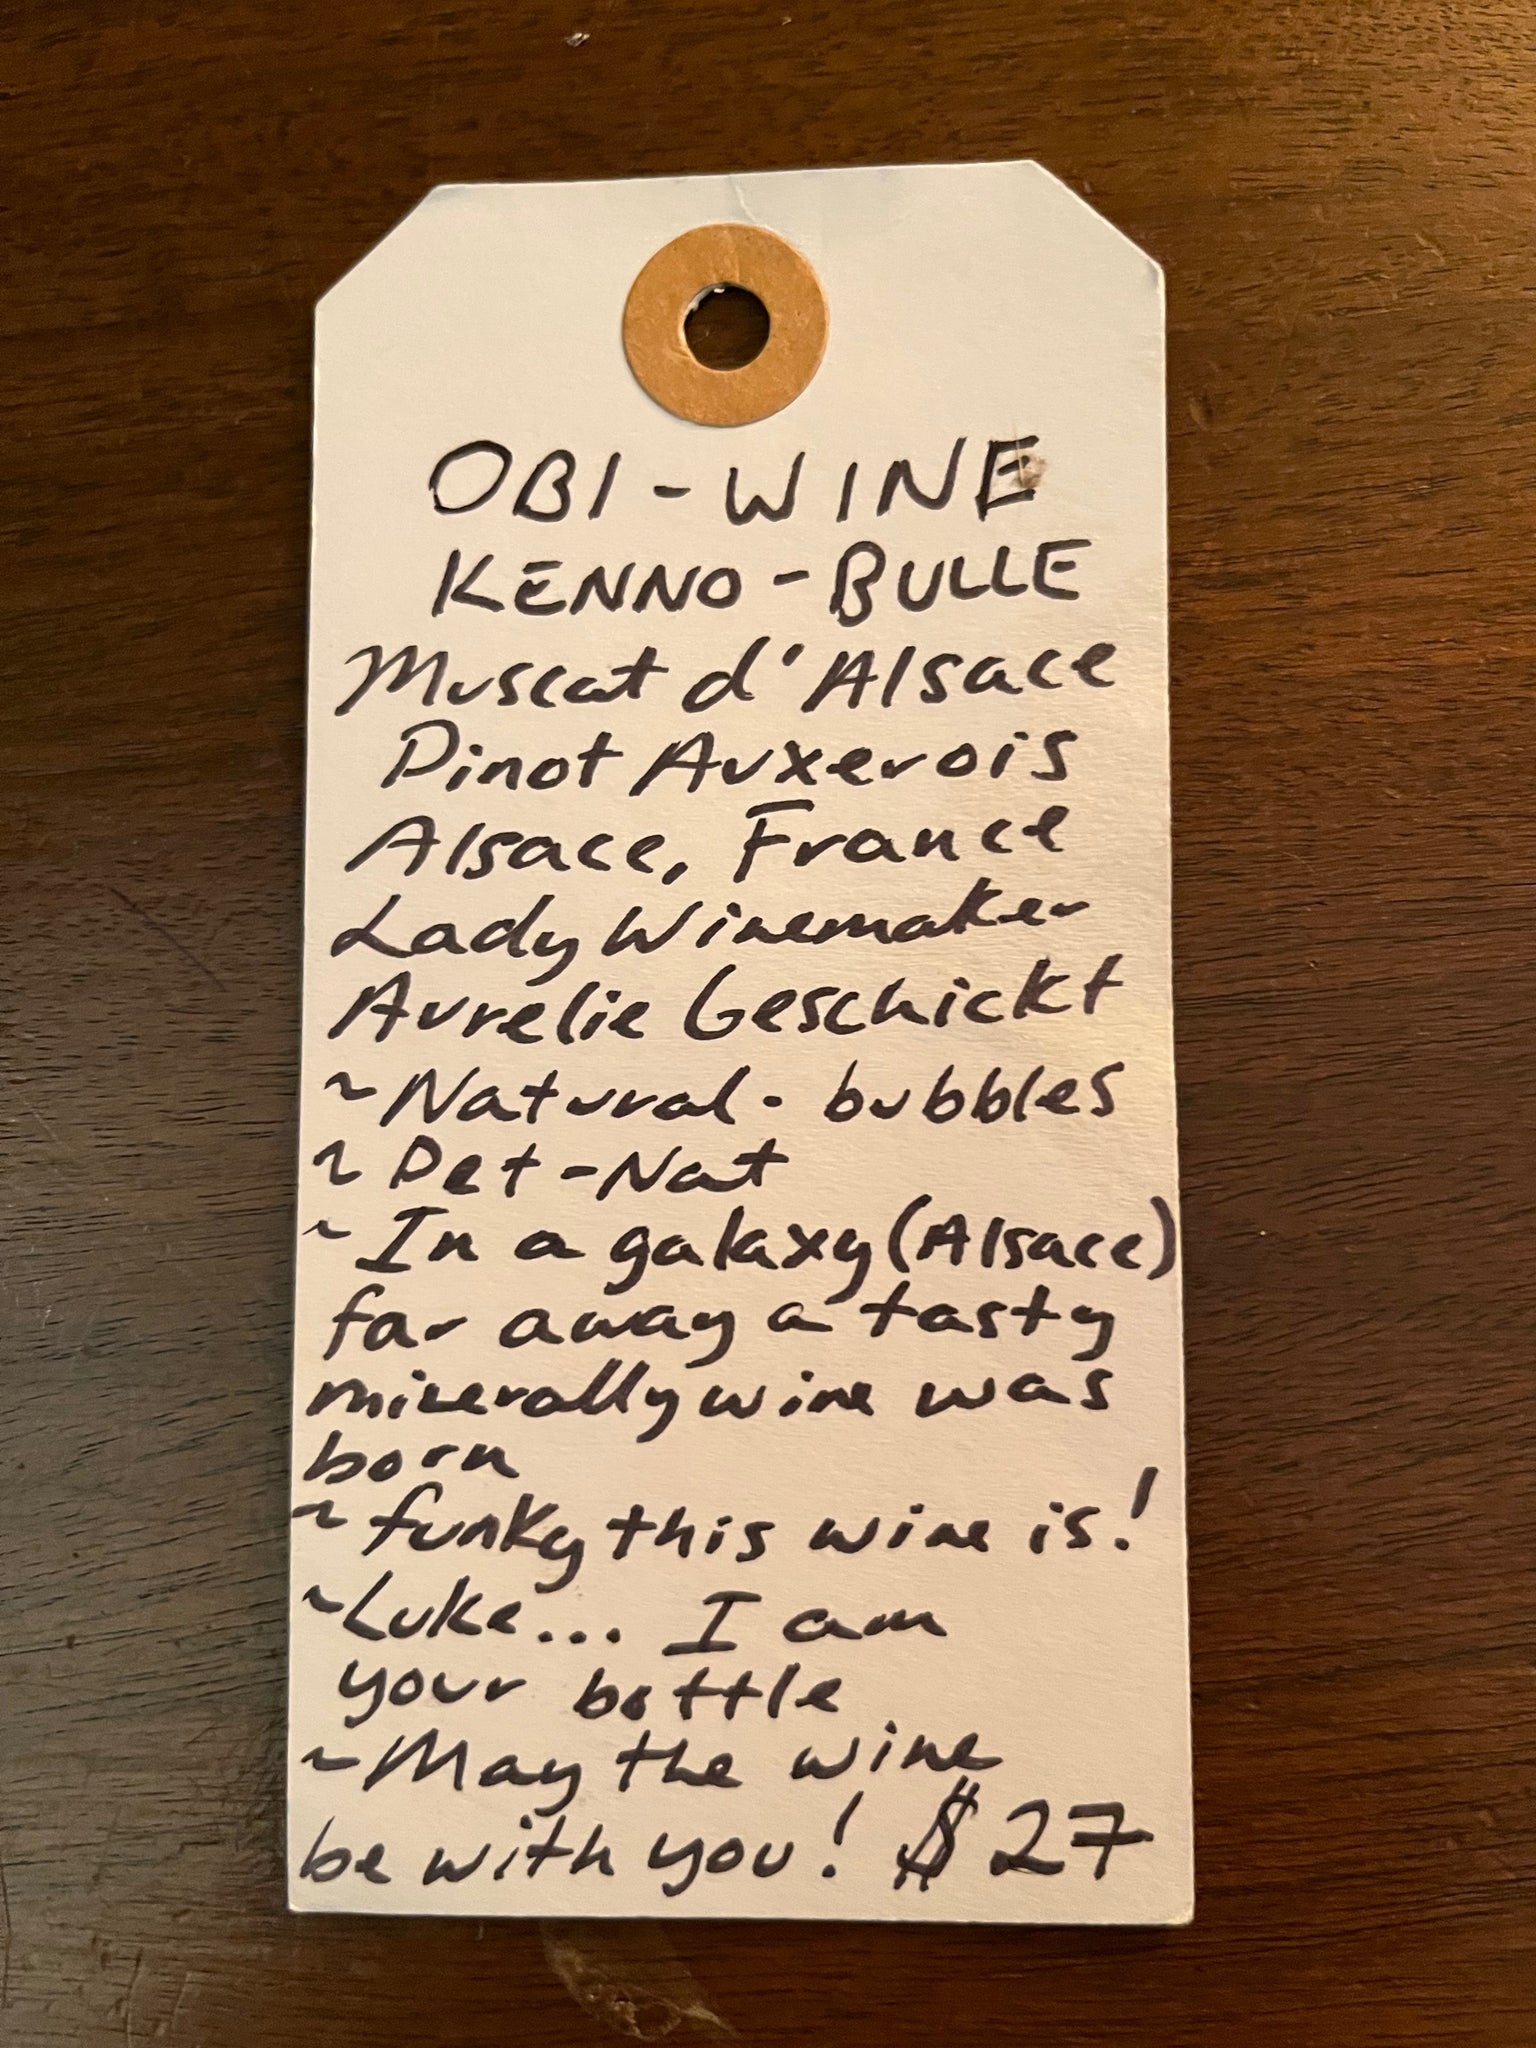 OBI-WINE
KENNO-BULLE
Muscat d'Alsace
Pinot Auxerois
Alsace, France
Lady Winemaker
Aurelie Geschickt
~Natural. bubbles
~Pet-Nat
~In a galaxy (Alsace)
far away a tasty
minerally wine was
born
~funky this wine is!
~Luke... I am
your bottle
~May the wine
be with you! $27